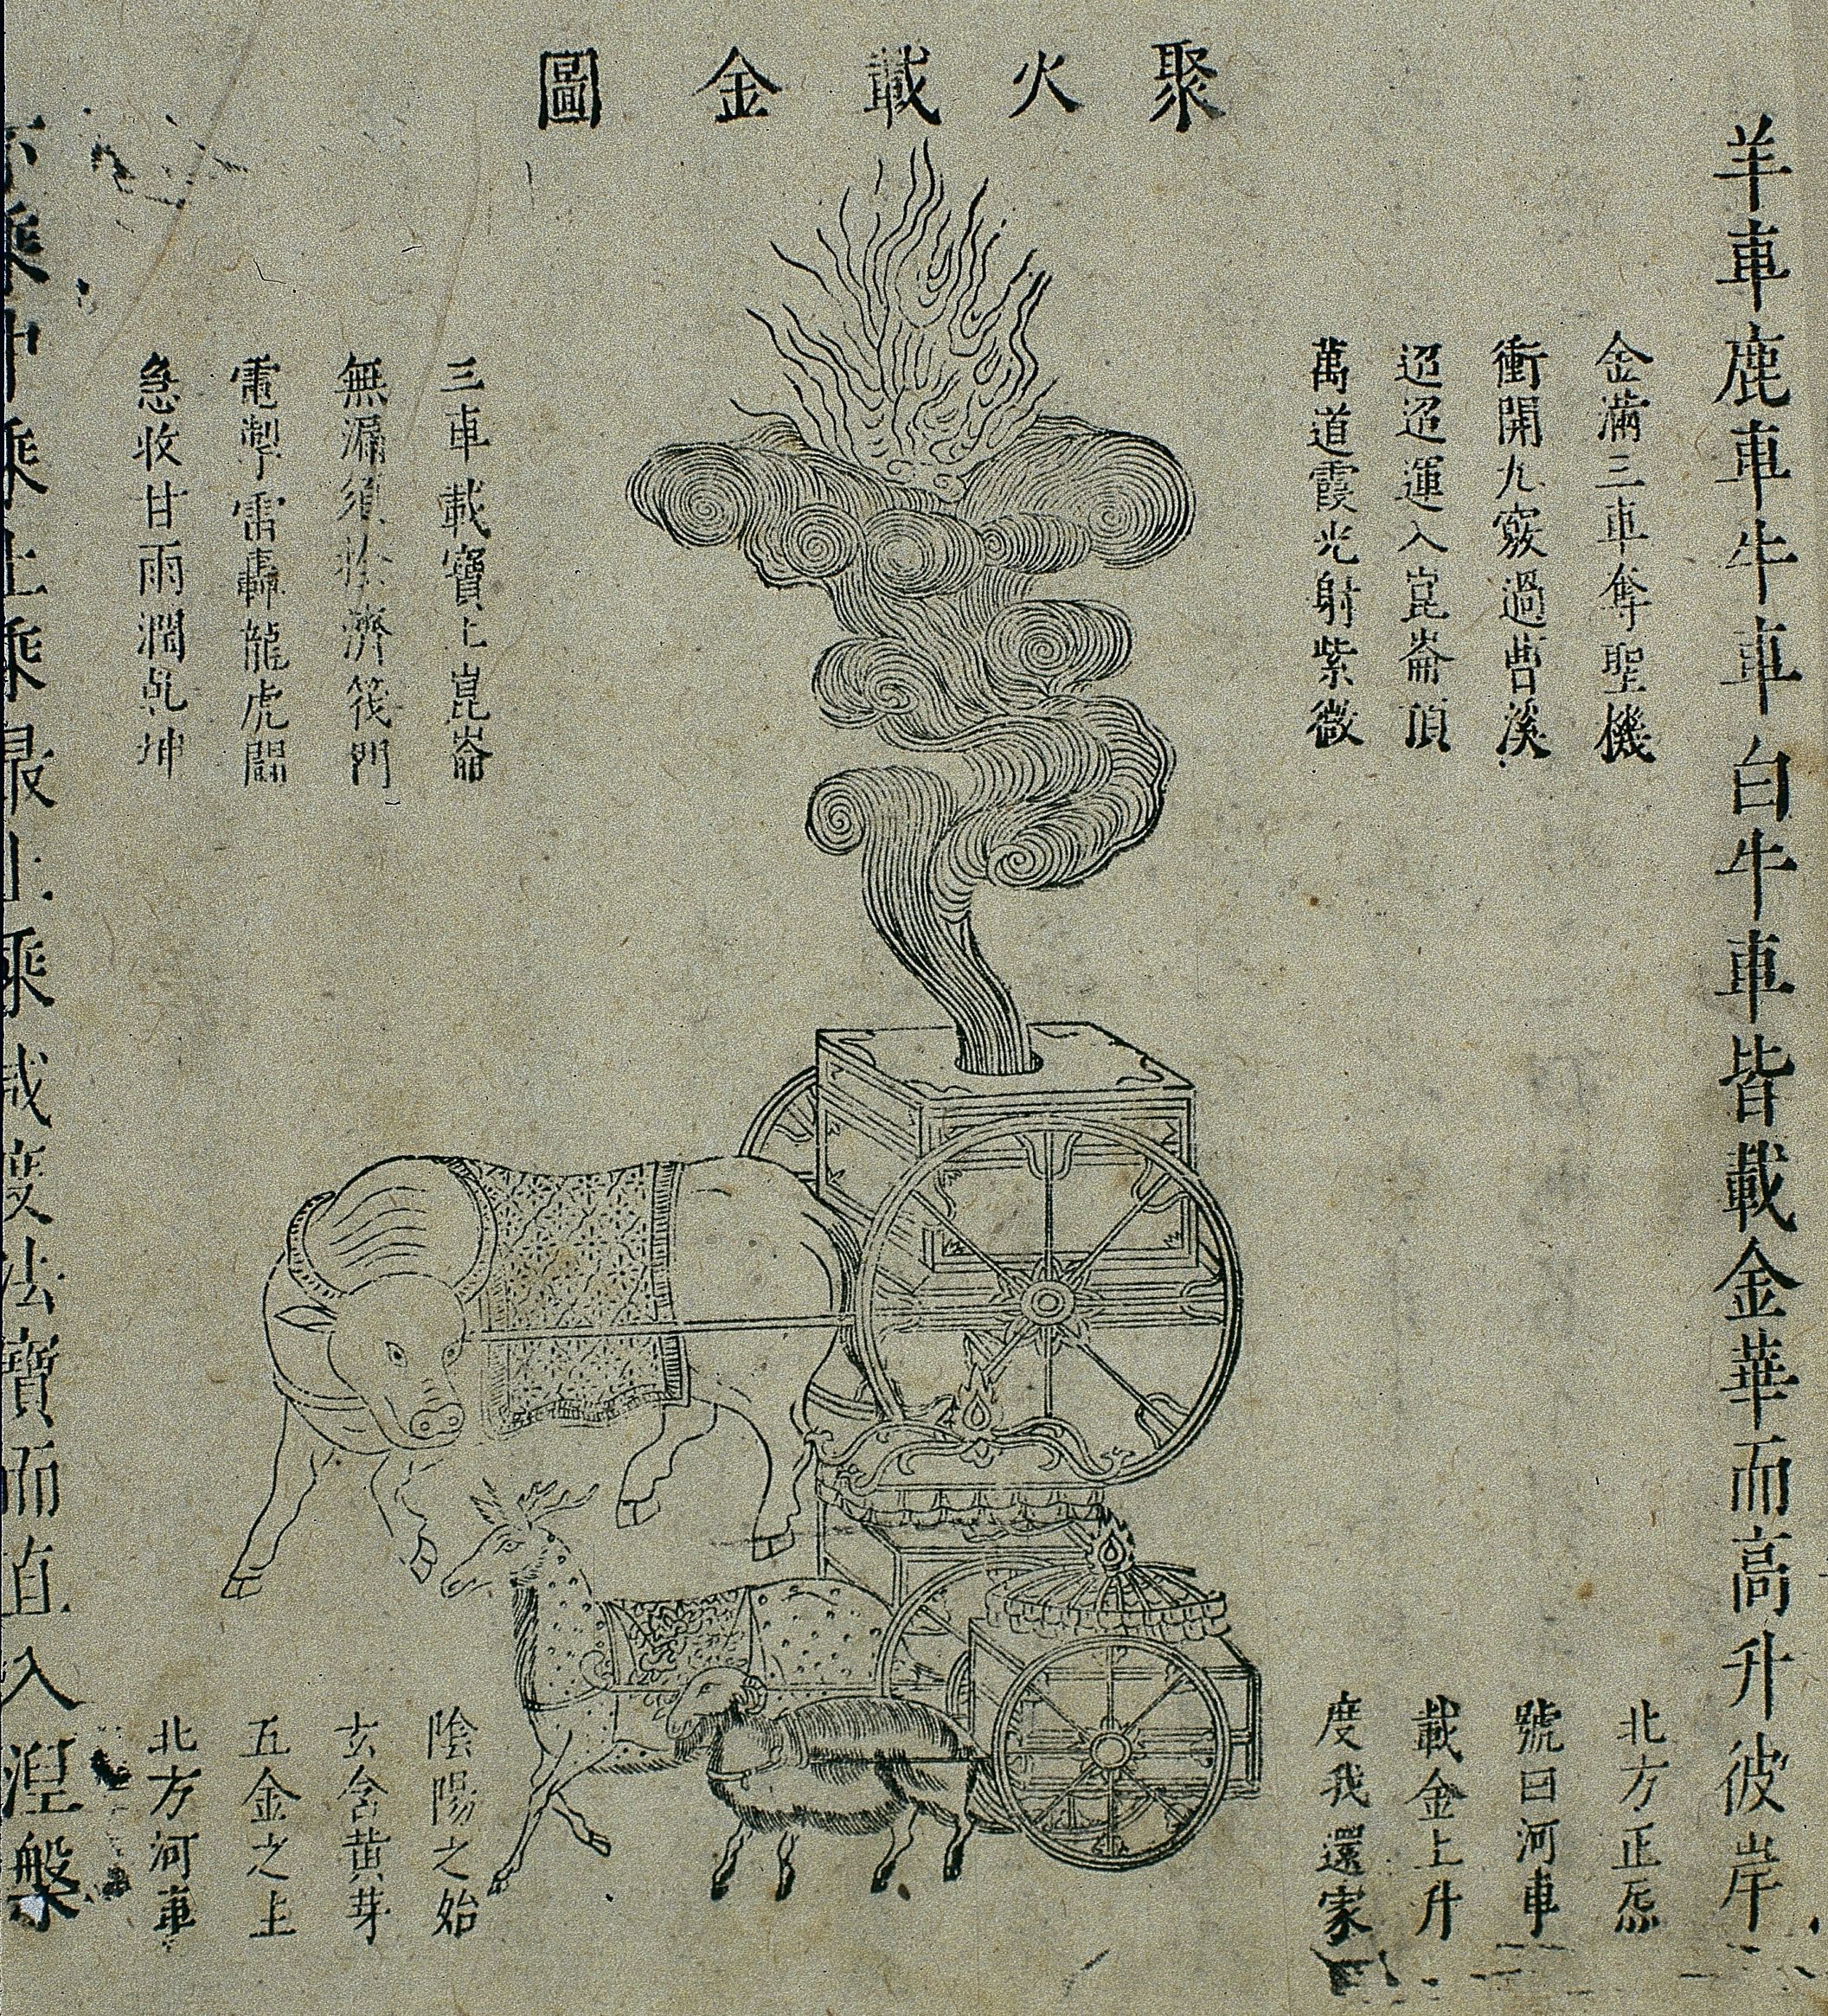 聚火載金圖
羊車鹿車牛車白牛車皆載金華而高升彼岸
金滿三車奪聖機
衝開九竅過曹溪
迢迢運入崑崙頂
萬道霞光射紫微
北方正炁
號曰河車
載金上升
度我還家
三車載寶上崑崙
無漏須濟筏門
電掣雷轟龍虎鬪
急收甘雨潤乾坤
陰陽之始
玄含黃芽
五金之主
北方河車
乘中乘上乘最上乘咸度法寶而直入湼槃